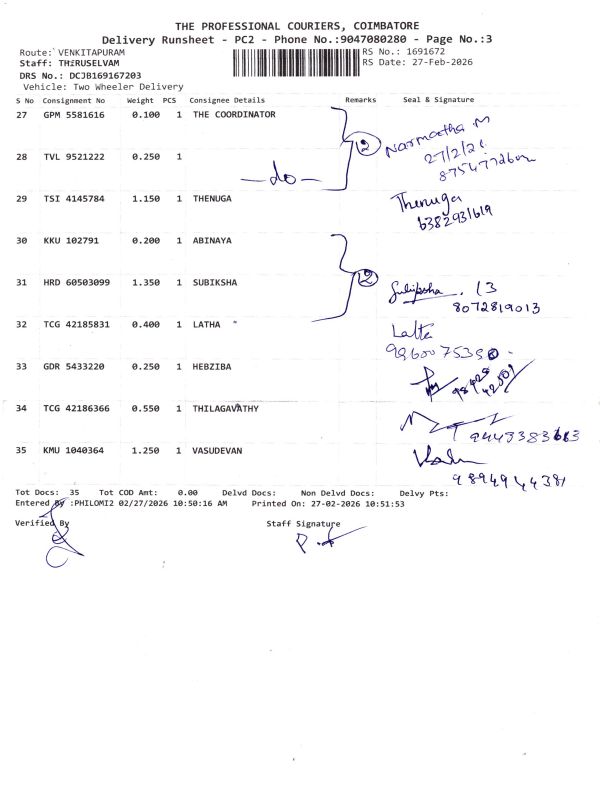 THE PROFESSIONAL COURIERS, COIMBATORE
Delivery Runsheet - PC2 - Phone No.:9047080280 - Page No.:3
Route: VENKITAPURAM RS No.: 1691672
Staff: THIRUSELVAM RS Date: 27-Feb-2026
DRS No.: DCJB169167203
Vehicle: Two Wheeler Delivery
S No Consignment No Weight PCS Consignee Details Remarks Seal & Signature
27 GPM 5581616 0.100 1 THE COORDINATOR
2 Narmatha M
27/2/26
28 TVL 9521222 0.250 1
—do—
29 TSI 4145784 1.150 1 THENUGA Thenuga
6382931619
30 KKU 102791 0.200 1 ABINAYA
2
31 HRD 60503099 1.350 1 SUBIKSHA Subiksha . 13
8072819013
32 TCG 42185831 0.400 1 LATHA " Latha
33 GDR 5433220 0.250 1 HEBZIBA
34 TCG 42186366 0.550 1 THILAGAVATHY
35 KMU 1040364 1.250 1 VASUDEVAN
9894944381
Tot Docs: 35 Tot COD Amt: 0.00 Delvd Docs: Non Delvd Docs: Delvy Pts:
Entered By :PHILOMI2 02/27/2026 10:50:16 AM Printed On: 27-02-2026 10:51:53
Verified By Staff Signature